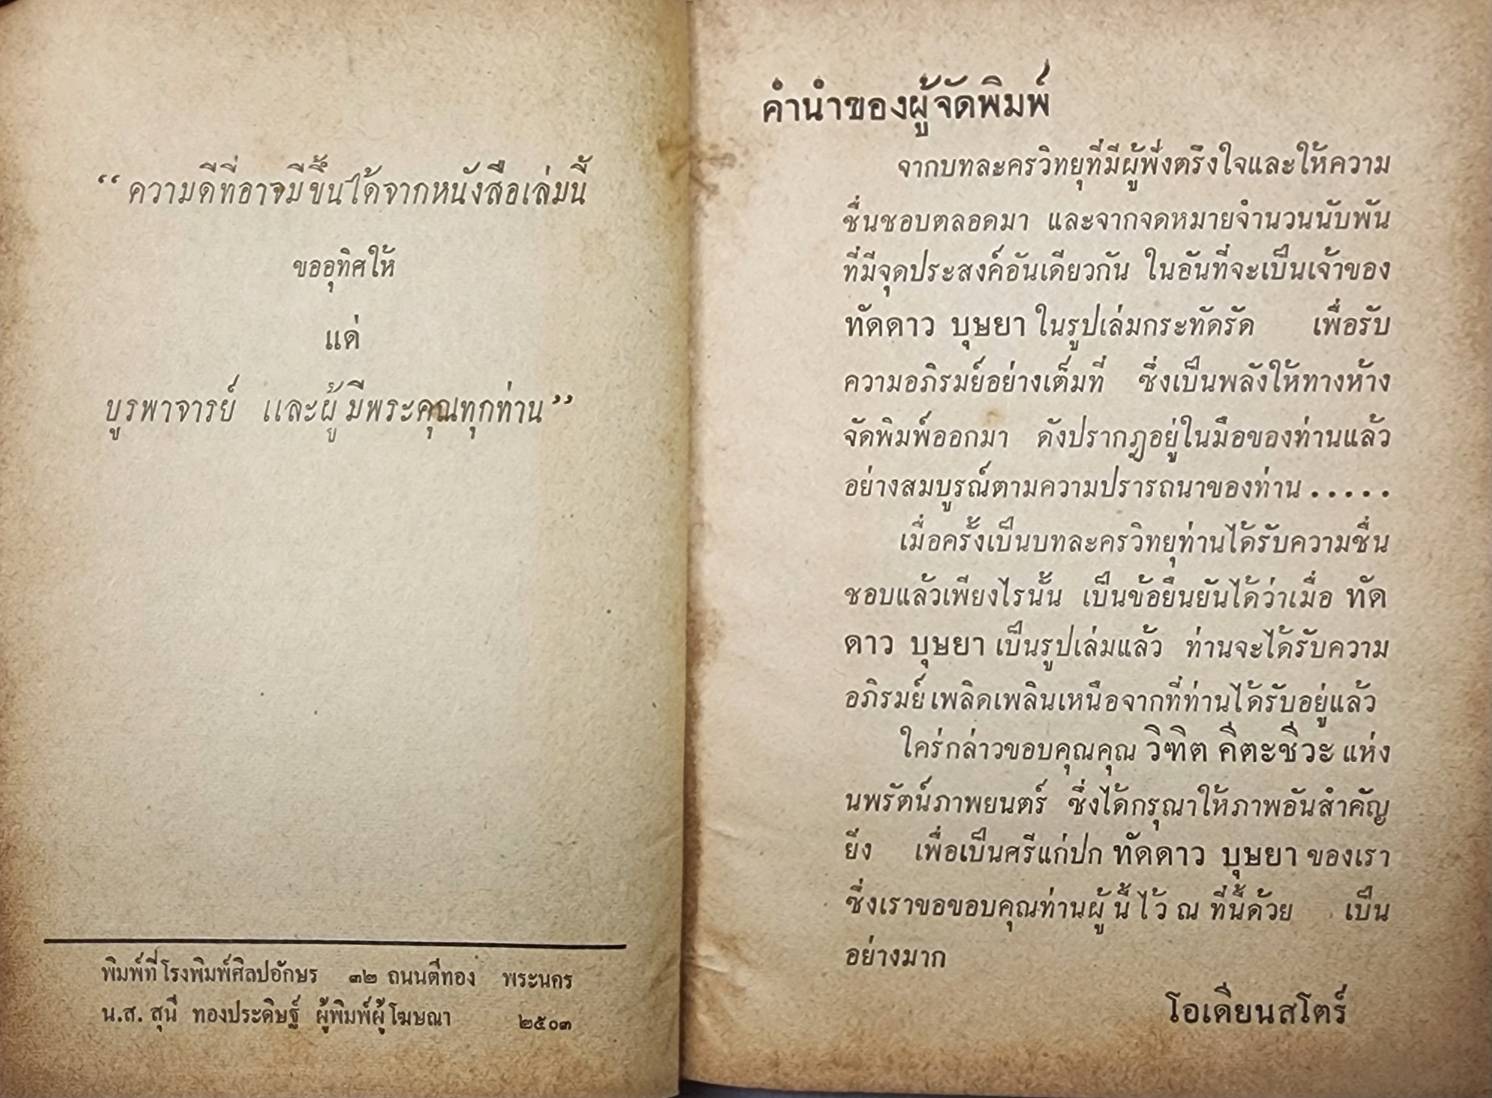 “ ความดีที่อาจมีขึ้นได้จากหนังสือเล่มนี้
ขออุทิศให้
แด่
บูรพาจารย์ และผู้มีพระคุณทุกท่าน ”
พิมพ์ที่โรงพิมพ์ศิลปอักษร ๓๒ ถนนตีทอง พระนคร
น.ส. สุนี ทองประดิษฐ์ ผู้พิมพ์ผู้โฆษณา ๒๕๐๓
คำนำของผู้จัดพิมพ์
จากบทละครวิทยุที่มีผู้ฟังตรึงใจและให้ความ
ชื่นชอบตลอดมา และจากจดหมายจำนวนนับพัน
ที่มีจุดประสงค์อันเดียวกัน ในอันที่จะเป็นเจ้าของ
ทัดดาว บุษยา ในรูปเล่มกระทัดรัด เพื่อรับ
ความอภิรมย์อย่างเต็มที่ ซึ่งเป็นพลังให้ทางห้าง
จัดพิมพ์ออกมา ดังปรากฎอยู่ในมือของท่านแล้ว
อย่างสมบูรณ์ตามความปรารถนาของท่าน . . . . .
เมื่อครั้งเป็นบทละครวิทยุท่านได้รับความชื่น
ชอบแล้วเพียงไรนั้น เป็นข้อยืนยันได้ว่าเมื่อ ทัด
ดาว บุษยา เป็นรูปเล่มแล้ว ท่านจะได้รับความ
อภิรมย์เพลิดเพลินเหนือจากที่ท่านได้รับอยู่แล้ว
ใคร่กล่าวขอบคุณคุณ วิฑิต คีตะชีวะ แห่ง
นพรัตน์ภาพยนตร์ ซึ่งได้กรุณาให้ภาพอันสำคัญ
ยิ่ง เพื่อเป็นศรีแก่ปก ทัดดาว บุษยา ของเรา
ซึ่งเราขอขอบคุณท่านผู้นี้ไว้ ณ ที่นี้ด้วย เป็น
อย่างมาก
โอเดียนสโตร์